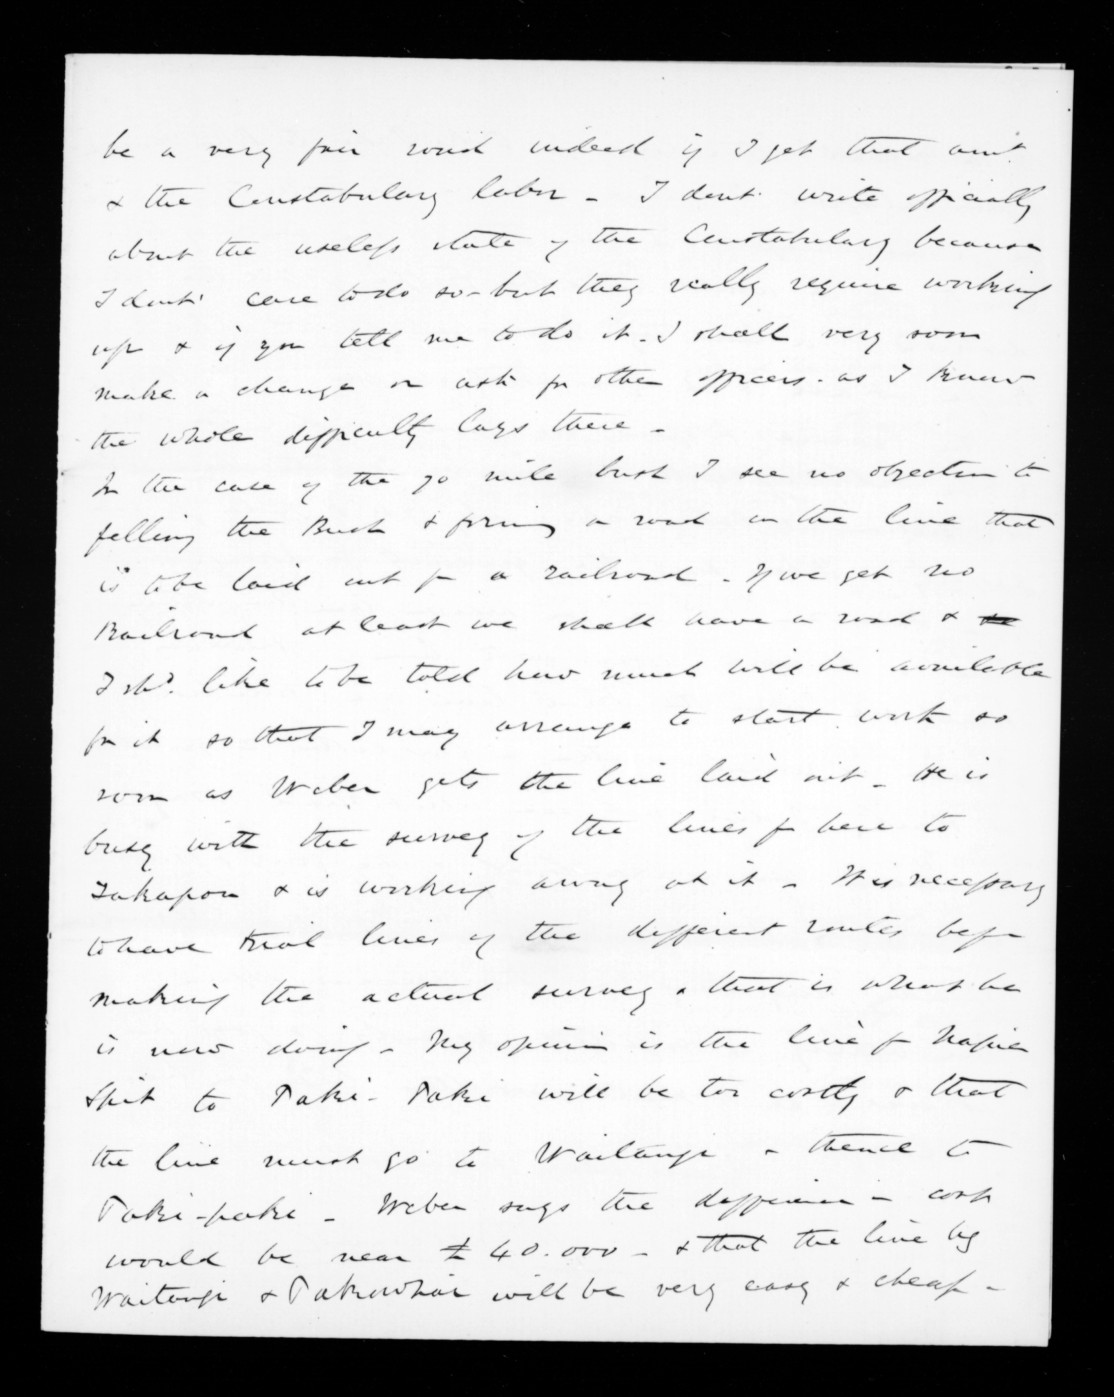 be a very fair road indeed if I get that amt
& the Constabulary labor - I dont write officially
about the useless state of the Constabulary because
I dont care to do so - but they really require working
up & if you tell me to do it. I shall very soon
make a change or ask for other officers. as I know
the whole difficulty lays there -
In the case of the 70 mile bush I see no objection to
felling the Bush & forming a road on the line that
is to be laid out for a railroad - If we get no
Railroad at least we shall have a road &
I shd. like to be told how much will be available
for it so that I may arrange to start work so
soon as Weber gets the line laid out - He is
busy with the survey of the lines fr here to
Takapau & is working away at it - It is necessary
to have trial lines of the different routes before
making the actual survey & that is what he
is now doing - My opinion is the line fr Napier
Spit to Paki-Paki will be too costly & that
the line must go to Waitangi & thence to
Paki-paki - Weber says the difference in cost
would be near £40.000 - & that the line by
Waitangi & Pakowhai will be very easy & cheap -